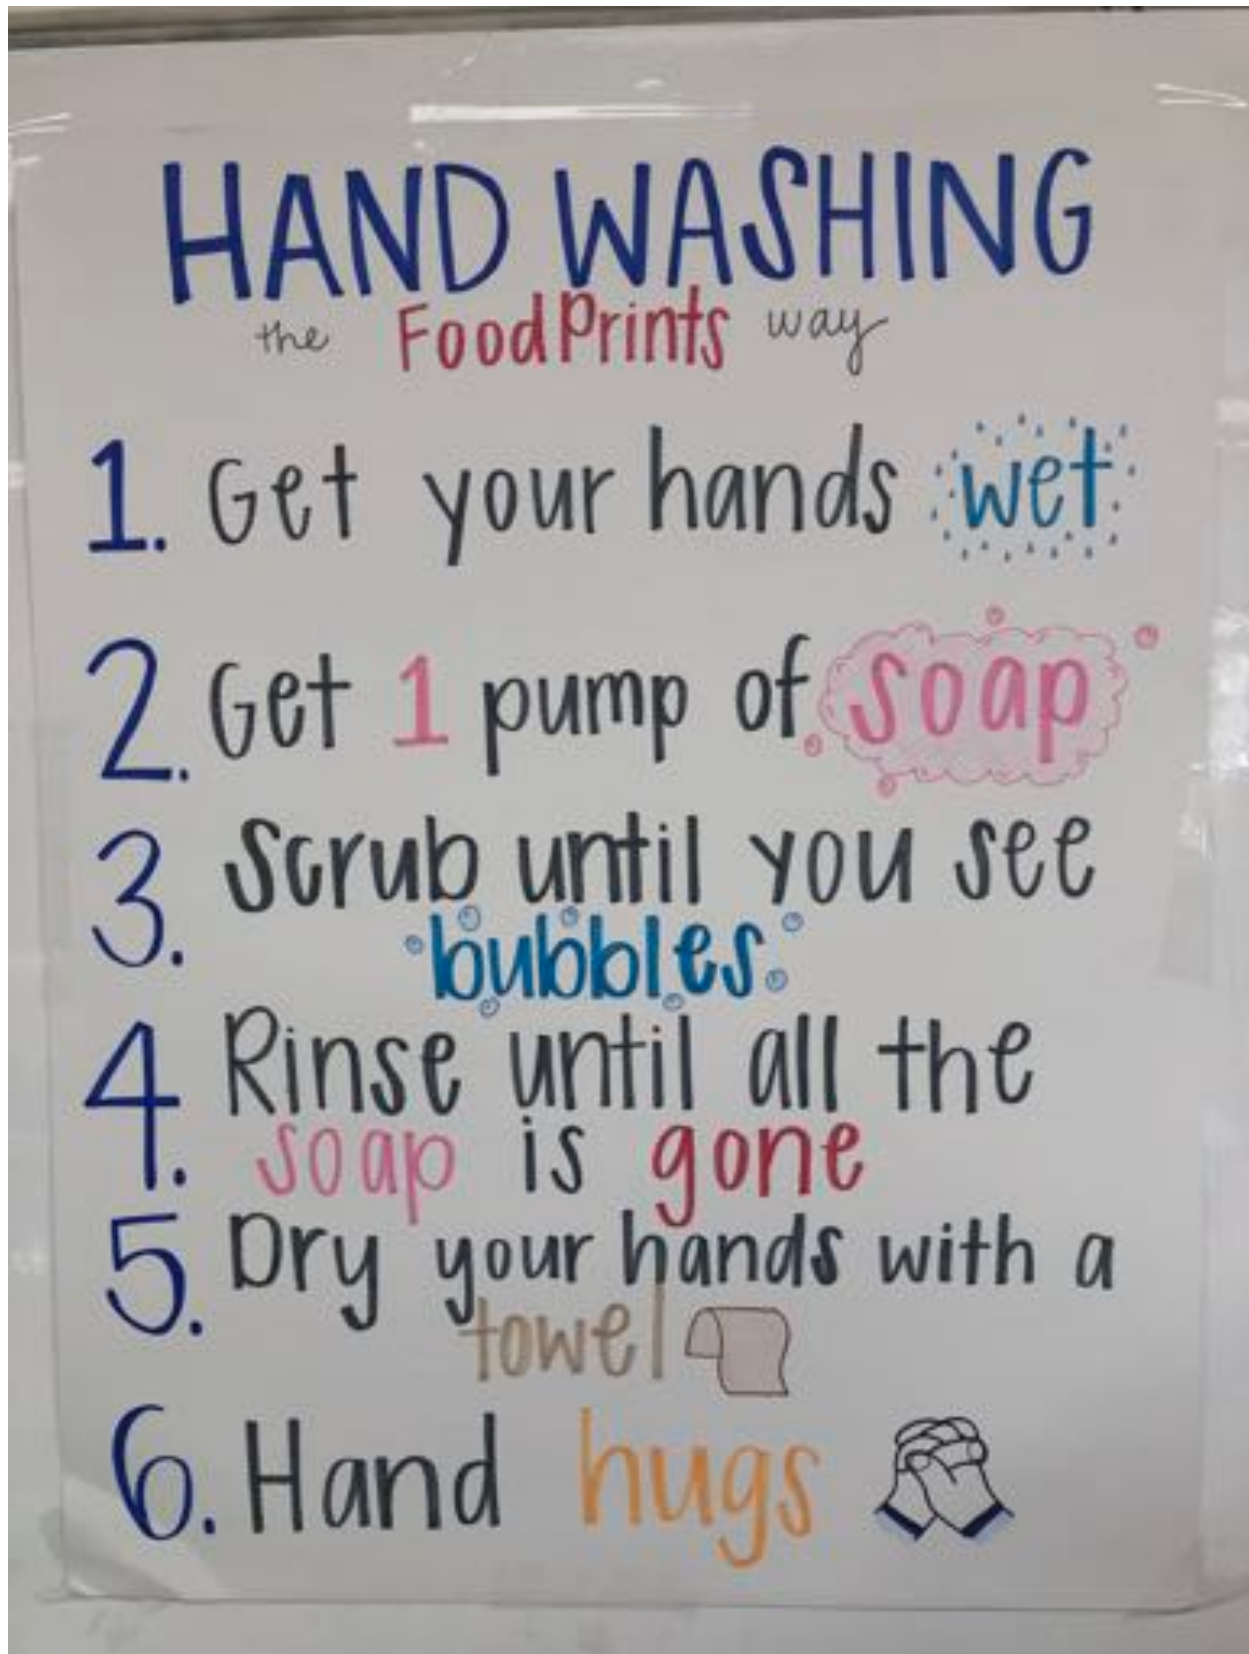 HAND WASHING
the FoodPrints way
1. Get your hands wet
2. Get 1 pump of soap
3. Scrub until you see
bubbles
4. Rinse until all the
soap is gone
5. Dry your hands with a
towel
6. Hand hugs